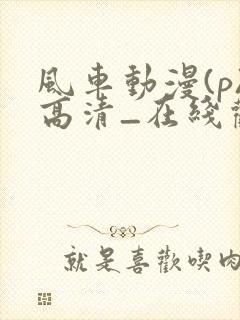 風車動漫(p
高清_在綫
就是喜歡喫肉